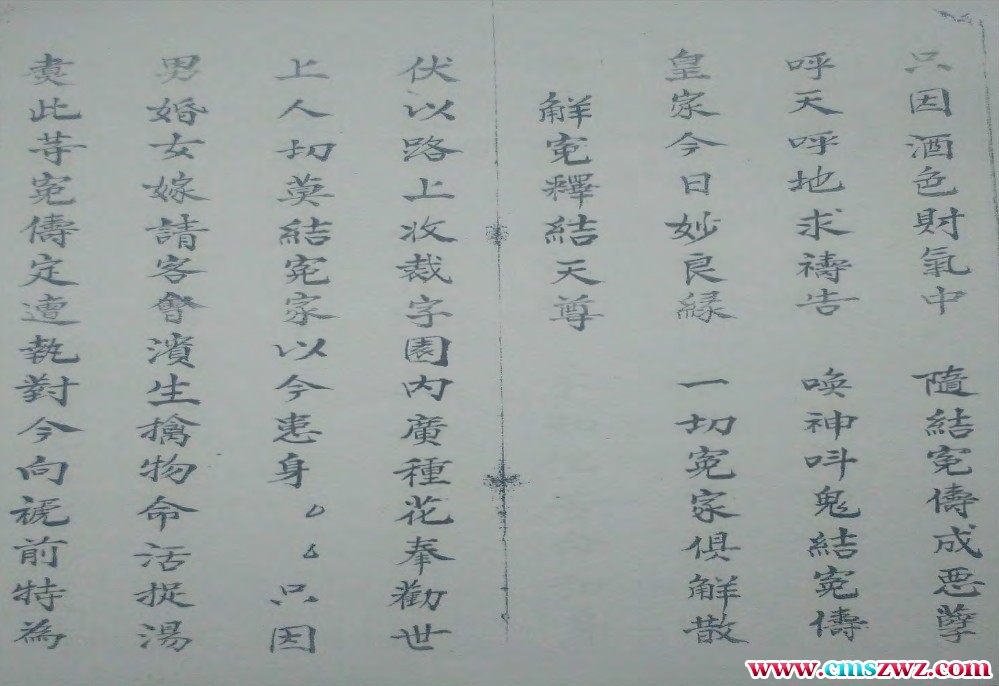 只因酒色財氣中 隨結冤儔成悪孽
呼天呼地求禱告 喚神呌鬼結冤儔
皇家今日妙良緣 一切冤家俱觧散
觧冤釋結天尊
伏以路上收裁字園內廣種花奉勸世
上人切莫結冤家以今患身 只因
男婚女嫁請客會濱生擒物命活捉湯
此等冤儔定遭執對今向前特為
www.cmszwz.com